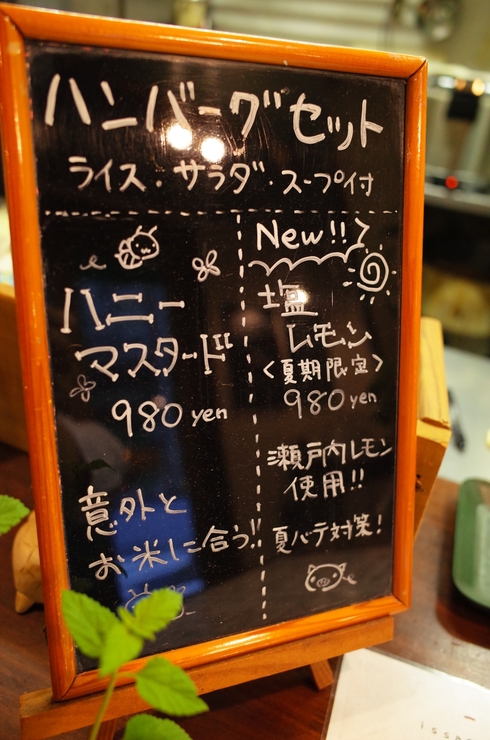 ハンバーグセット
ライス・サラダ・スープ付
ハニー
マスタード
980 yen
意外と
お米に合う!!
New!!
塩
レモン
<夏期限定>
980 yen
瀬戸内レモン
使用!!
夏バテ対策!